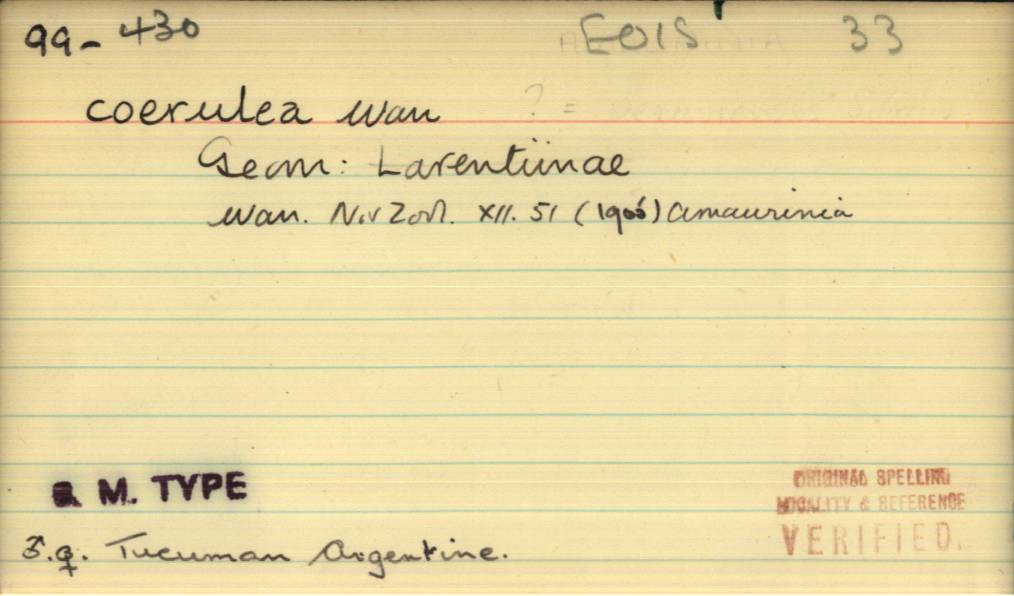 99-430 EOIS 33
coerulea Warr ? =
Geom: Larentiinae
Warr. Nov Zool. XII. 51 (1905) Amaurinia
B. M. TYPE
♂.♀. Tucuman Argentine.
ORIGINAL SPELLING
LOCALITY & REFERENCE
VERIFIED.